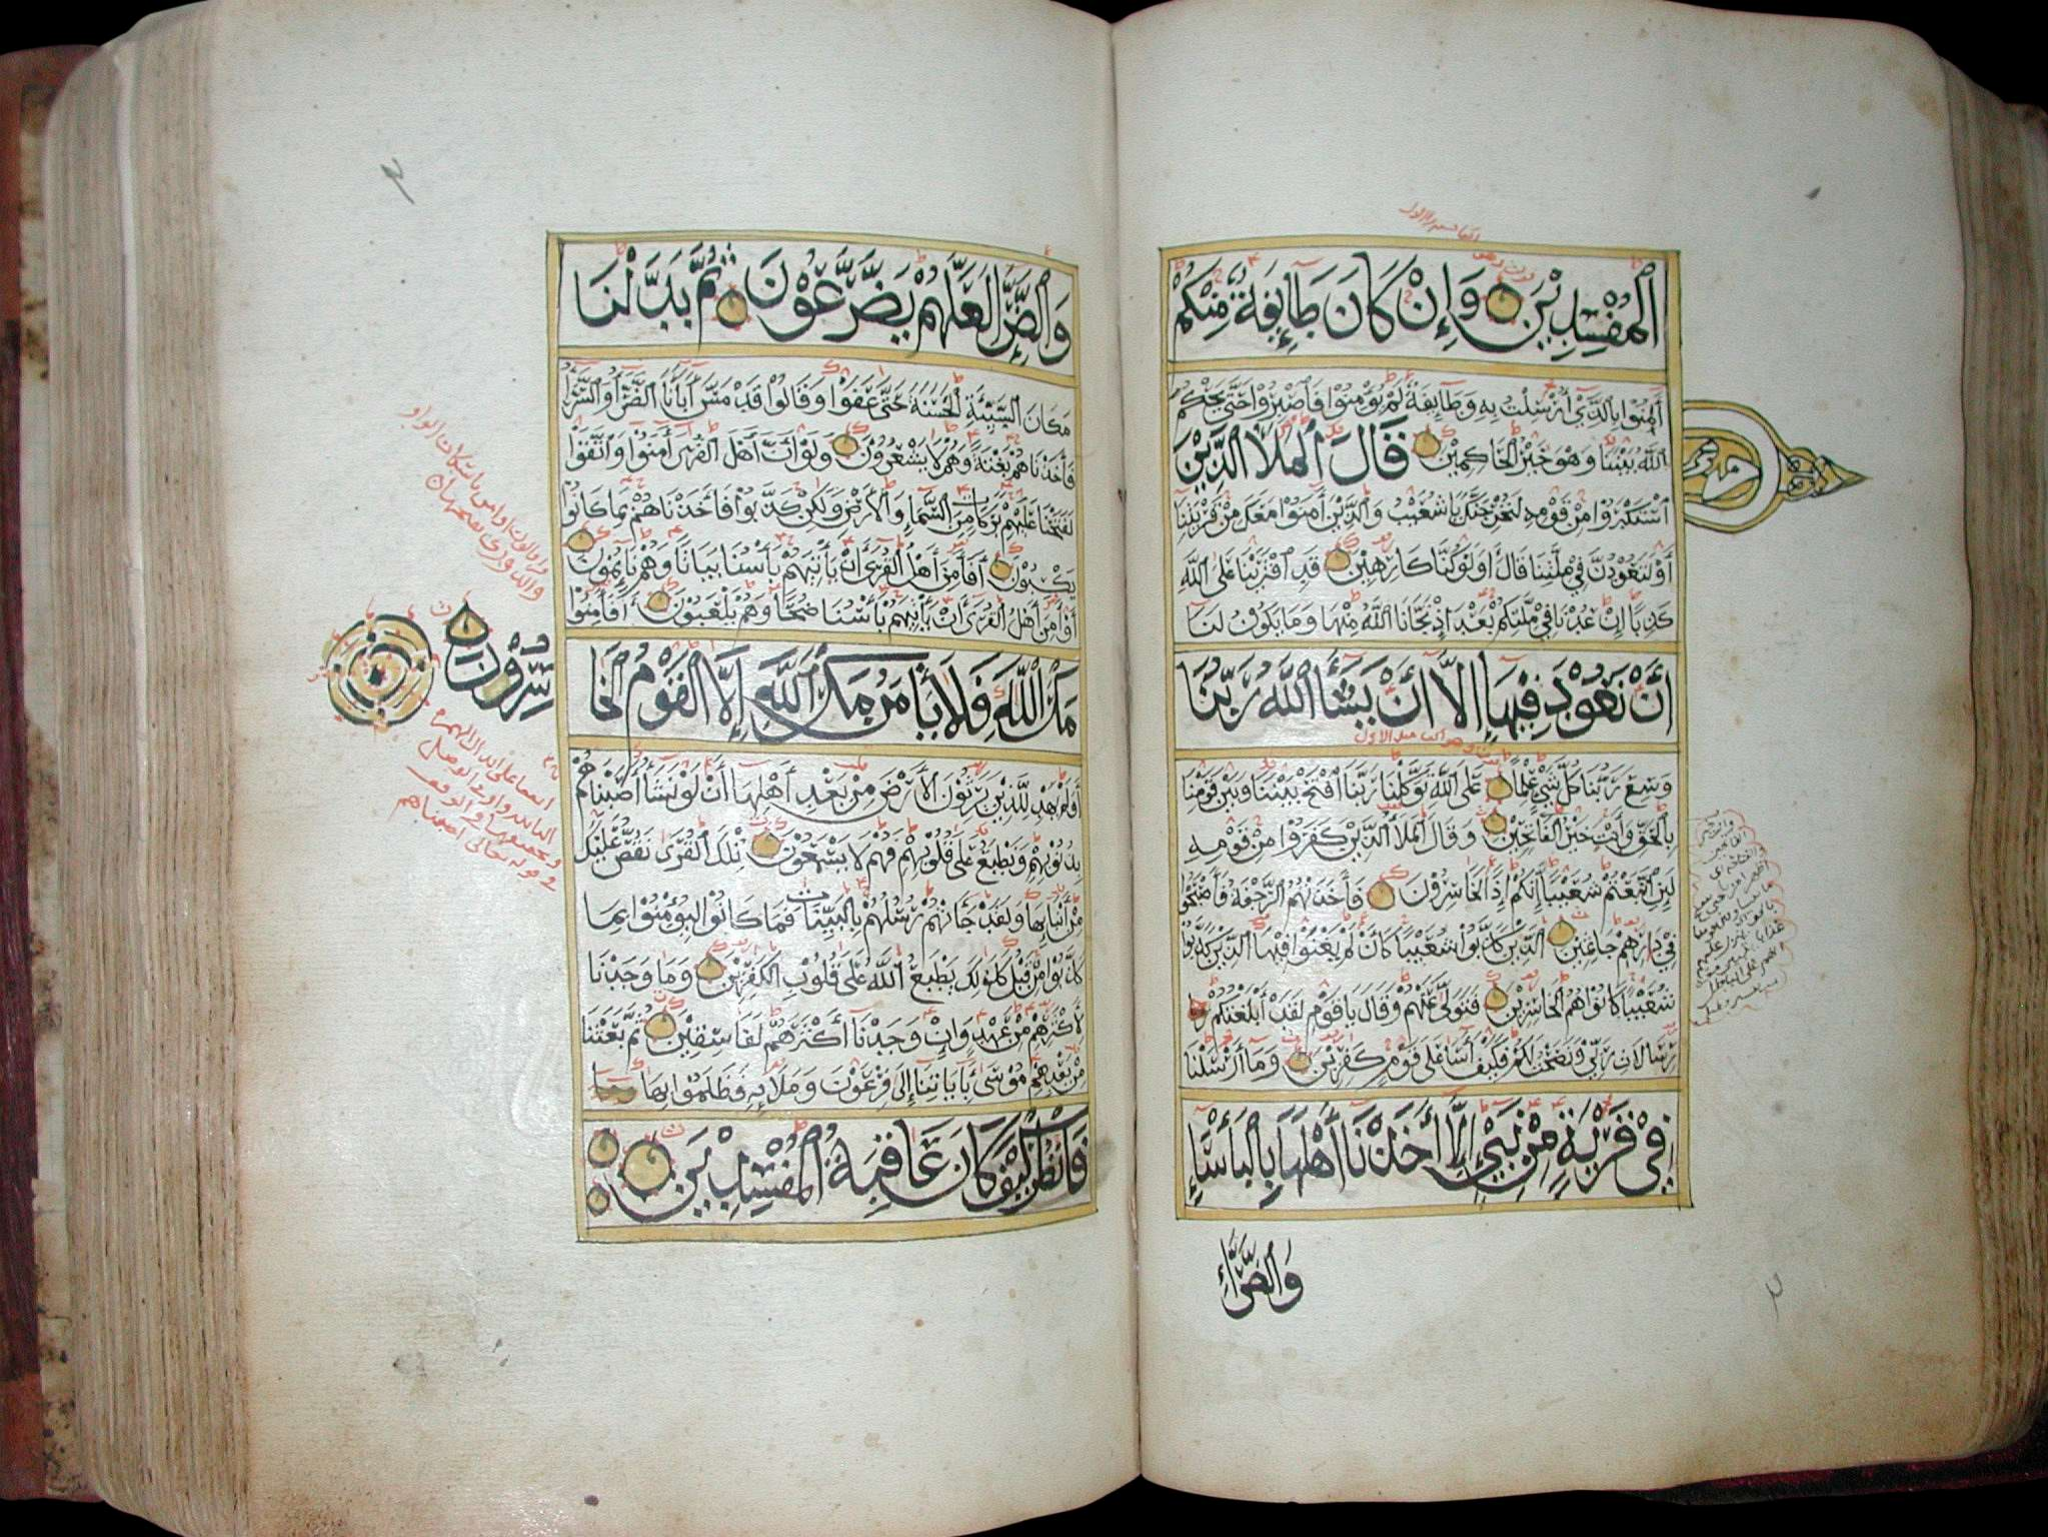 ٱلْمُفْسِدِيْنَ وَإِنْ كَانَ طَآئِفَةٌ مِنْكُمْ
آمَنُوا بِالَّذِيْ أُرْسِلْتُ بِهِ وَطَآئِفَةٌ لَمْ يُؤْمِنُوْا فَاصْبِرُوْا حَتَّى يَحْكُمَ
اللّٰهُ بَيْنَنَا وَهُوَ خَيْرُ الْحَاكِمِيْنَ قَالَ ٱلْمَلَأُ الَّذِيْنَ
اسْتَكْبَرُوْا مِنْ قَوْمِهِ لَنُخْرِجَنَّكَ يَا شُعَيْبُ وَالَّذِيْنَ آمَنُوْا مَعَكَ مِنْ قَرْيَتِنَا
أَوْ لَتَعُوْدُنَّ فِيْ مِلَّتِنَا قَالَ أَوَلَوْ كُنَّا كَارِهِيْنَ قَدِ افْتَرَيْنَا عَلَى اللّٰهِ
كَذِبًا إِنْ عُدْنَا فِيْ مِلَّتِكُمْ بَعْدَ إِذْ نَجَّانَا اللّٰهُ مِنْهَا وَمَا يَكُوْنُ لَنَا
أَنْ نَعُوْدَ فِيْهَا إِلَّا أَنْ يَشَآءَ اللّٰهُ رَبُّنَا
وَسِعَ رَبُّنَا كُلَّ شَيْءٍ عِلْمًا عَلَى اللّٰهِ تَوَكَّلْنَا رَبَّنَا افْتَحْ بَيْنَنَا وَبَيْنَ قَوْمِنَا
بِالْحَقِّ وَأَنْتَ خَيْرُ الْفَاتِحِيْنَ وَقَالَ ٱلْمَلَأُ الَّذِيْنَ كَفَرُوْا مِنْ قَوْمِهِ
لَئِنِ اتَّبَعْتُمْ شُعَيْبًا إِنَّكُمْ إِذًا لَخَاسِرُوْنَ فَأَخَذَتْهُمُ الرَّجْفَةُ فَأَصْبَحُوْا
فِيْ دَارِهِمْ جَاثِمِيْنَ الَّذِيْنَ كَذَّبُوْا شُعَيْبًا كَأَنْ لَمْ يَغْنَوْا فِيْهَا الَّذِيْنَ كَذَّبُوْا
شُعَيْبًا كَانُوْا هُمُ الْخَاسِرِيْنَ فَتَوَلَّى عَنْهُمْ وَقَالَ يَا قَوْمِ لَقَدْ أَبْلَغْتُكُمْ
رِسَالَاتِ رَبِّيْ وَنَصَحْتُ لَكُمْ فَكَيْفَ آسَى عَلَى قَوْمٍ كٰفِرِيْنَ وَمَا أَرْسَلْنَا
فِيْ قَرْيَةٍ مِنْ نَبِيٍّ إِلَّا أَخَذْنَا أَهْلَهَا بِالْبَأْسَآءِ
وَالضَّرَّآءِ
وَالضَّرَّآءِ لَعَلَّهُمْ يَضَّرَّعُوْنَ ثُمَّ بَدَّلْنَا
مَكَانَ السَّيِّئَةِ الْحَسَنَةَ حَتَّى عَفَوْا وَقَالُوْا قَدْ مَسَّ آبَاءَنَا الضَّرَّآءُ وَالسَّرَّآءُ
فَأَخَذْنَاهُمْ بَغْتَةً وَهُمْ لَا يَشْعُرُوْنَ وَلَوْ أَنَّ أَهْلَ الْقُرَى آمَنُوْا وَاتَّقَوْا
لَفَتَحْنَا عَلَيْهِمْ بَرَكَاتٍ مِنَ السَّمَآءِ وَالْأَرْضِ وَلٰكِنْ كَذَّبُوْا فَأَخَذْنَاهُمْ بِمَا كَانُوْا
يَكْسِبُوْنَ أَفَأَمِنَ أَهْلُ الْقُرَى أَنْ يَأْتِيَهُمْ بَأْسُنَا بَيَاتًا وَهُمْ نَائِمُوْنَ
أَوَأَمِنَ أَهْلُ الْقُرَى أَنْ يَأْتِيَهُمْ بَأْسُنَا ضُحًى وَهُمْ يَلْعَبُوْنَ أَفَأَمِنُوْا
مَكْرَ اللّٰهِ فَلَا يَأْمَنُ مَكْرَ اللّٰهِ إِلَّا الْقَوْمُ الْخَا
سِرُوْنَ
أَوَلَمْ يَهْدِ لِلَّذِيْنَ يَرِثُوْنَ الْأَرْضَ مِنْ بَعْدِ أَهْلِهَا أَنْ لَوْ نَشَآءُ أَصَبْنَاهُمْ
بِذُنُوْبِهِمْ وَنَطْبَعُ عَلَى قُلُوْبِهِمْ فَهُمْ لَا يَسْمَعُوْنَ تِلْكَ الْقُرَى نَقُصُّ عَلَيْكَ
مِنْ أَنْبَائِهَا وَلَقَدْ جَاءَتْهُمْ رُسُلُهُمْ بِالْبَيِّنَاتِ فَمَا كَانُوْا لِيُؤْمِنُوْا بِمَا
كَذَّبُوْا مِنْ قَبْلُ كَذٰلِكَ يَطْبَعُ اللّٰهُ عَلَى قُلُوْبِ الْكٰفِرِيْنَ وَمَا وَجَدْنَا
لِأَكْثَرِهِمْ مِنْ عَهْدٍ وَإِنْ وَجَدْنَا أَكْثَرَهُمْ لَفَاسِقِيْنَ ثُمَّ بَعَثْنَا
مِنْ بَعْدِهِمْ مُوْسَى بِآيَاتِنَا إِلَى فِرْعَوْنَ وَمَلَئِهِ فَظَلَمُوْا بِهَا
فَانْظُرْ كَيْفَ كَانَ عَاقِبَةُ الْمُفْسِدِيْنَ